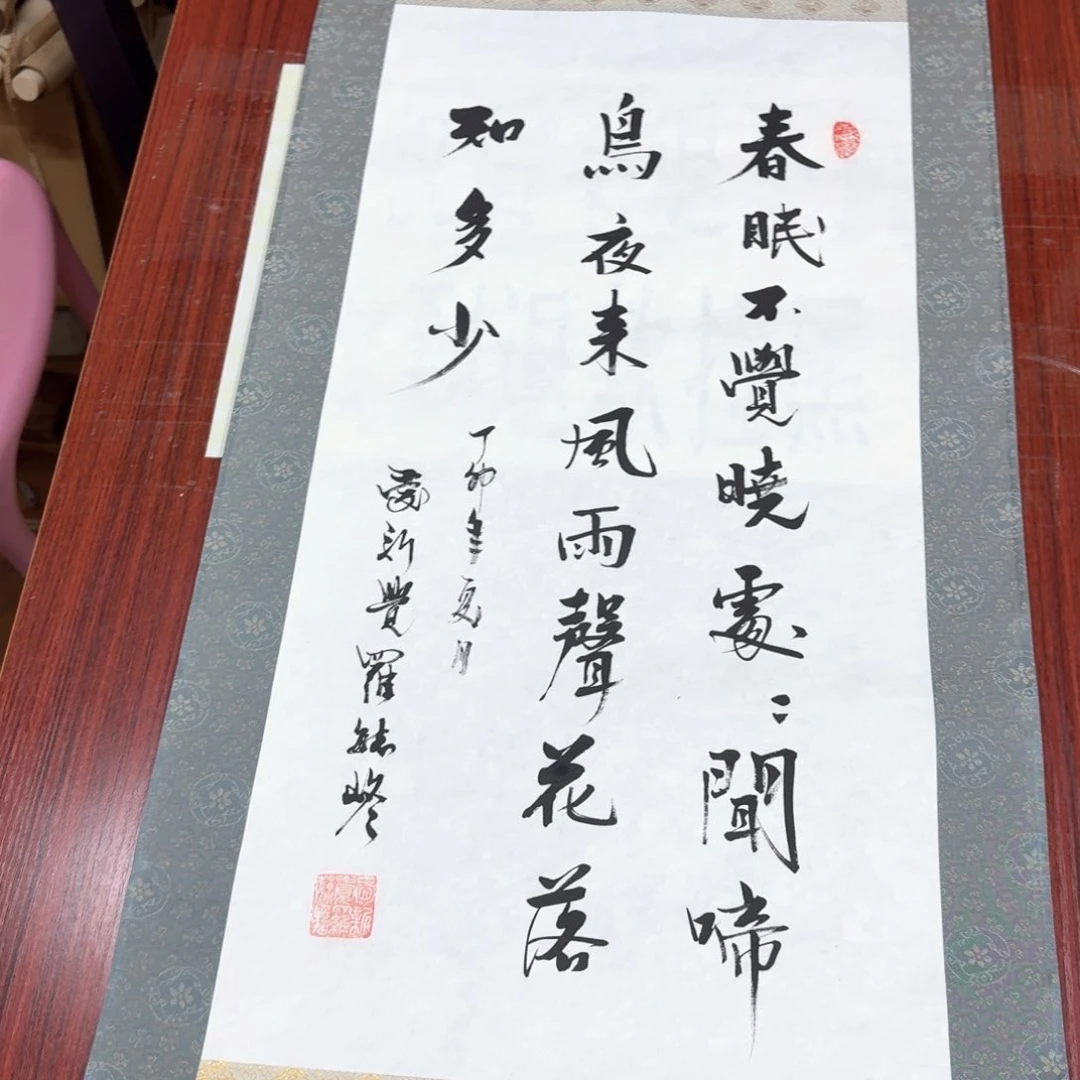 春眠不覺曉處〻聞啼
鳥夜来風雨聲花落
知多少
丁卯年夏月
愛新覺羅毓峑